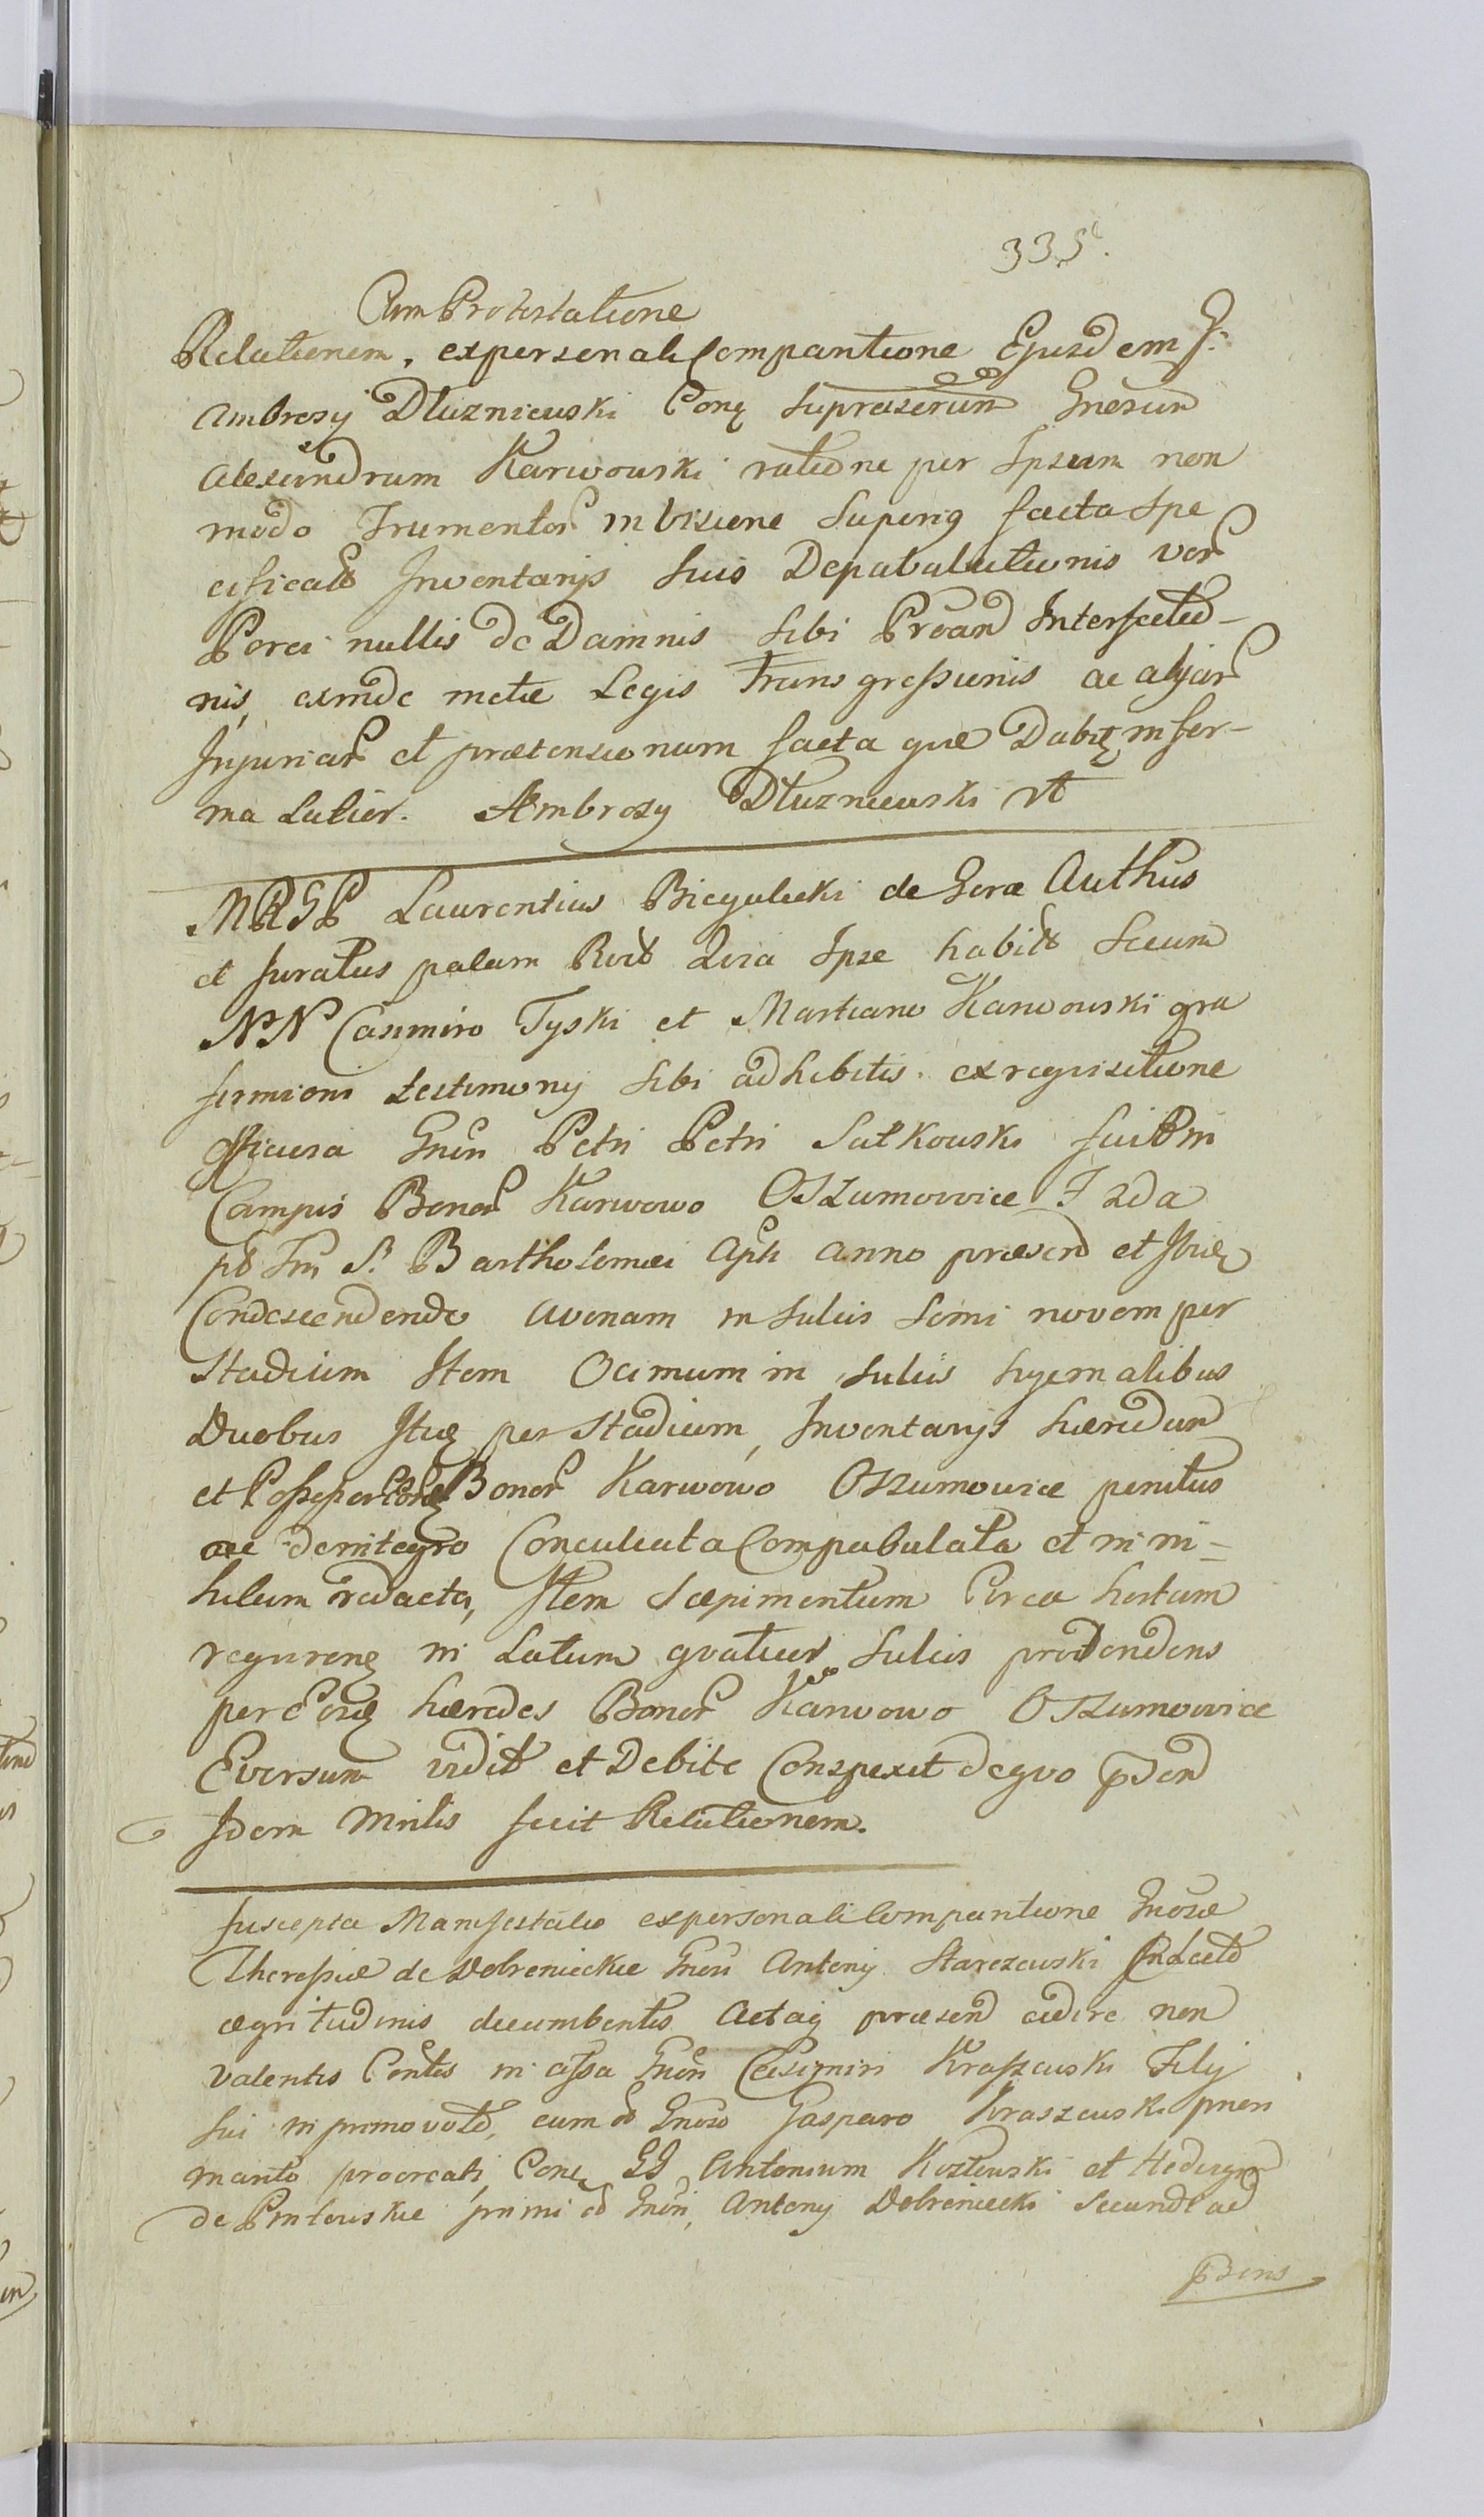 335.
Cum Protestatione
Relationem, ex personali Comparitione Ejusdem G.
Ambrosij Dłuzniewski Conq supraserum Gnesum
Alexandrum Karwowski ratione per Ipsum non
modo Frumentor in visione superiq facta Spe
cificat Inventarijs suis Depabulationis ver
Porci nullis de Damnis sibi Interfectio-
nis, exinde metae Legis Transgressionis ac aljar
Injuriar et praetensionum facta quae Dabitq in for-
ma Latior. Ambrosy Dłuzniewski
MRGP Laurentius Biegulecki de Gora Authus
et Juratus palam Quia Ipse habit secum
NN Casimiro Tyski et Martiano Karwowski gra
firmiori testimonij sibi adhibitis ex requisitione
officiosa Gnen Petri Petri Sutkowski fuit in
Campis Bonor Karwowo Oszumowice F 2da
pt Fm S. Bartholomei Aplι anno praesend et Ibiq
Condescendendo avenam in sulcis semi novem per
Stadium Item Ocimum in sulcis hyemalibus
Duobus Itiq per Stadium, Inventarijs haeredum
et Possessor Bonor Karwowo Oszumowice penitus
ac de integro Conculcata Compabulata et in ni-
hilum redacta, Item Saepimentum Circa hortum
in Latum quatuor sulcis protendens
per haeredes Bonor Karwowo Oszumowice
Eversum vidit et Debite Conspexit de quo
Idem Minlis fecit Relationem.
Suscepta Manifestatio ex personali Comparitione Gnosae
Theressiae de Dobronieckie Gnosi Antonij Starczewski In Lecto
aegritudinis decumbentis Actaq praesend adire non
valentis Contis in assa Gnen Casimiri Kraszewski Filij
sui in primo voto, cum od Gnoso Gasparo Kraszewski pnen
marito procreati, Conq GG Antonium Kozłowski et Hedvigm
de Piotowskie primi od Gnen, Antonij Dobroniecki secundi ad